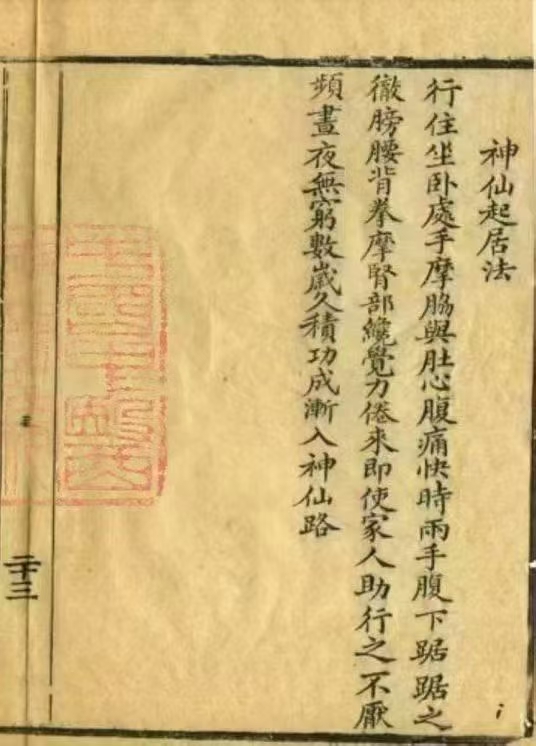 神仙起居法
行住坐卧處手摩脇與肚心腹痛快時兩手腹下踞踞之
徹膀腰背拳摩腎部纔覺力倦來即使家人助行之不厭
頻晝夜無窮數歲久積功成漸入神仙路
二十三